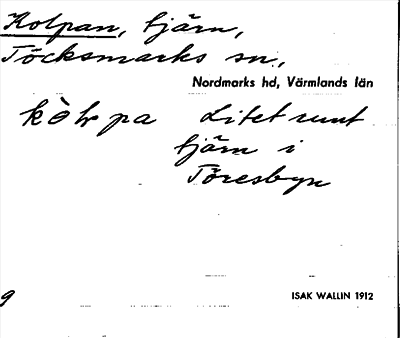 Kolpan, tjärn,
Töcksmarks sn,
Nordmarks hd, Värmlands län
Litet runt
tjärn i
Töresbyn
9
ISAK WALLIN 1912